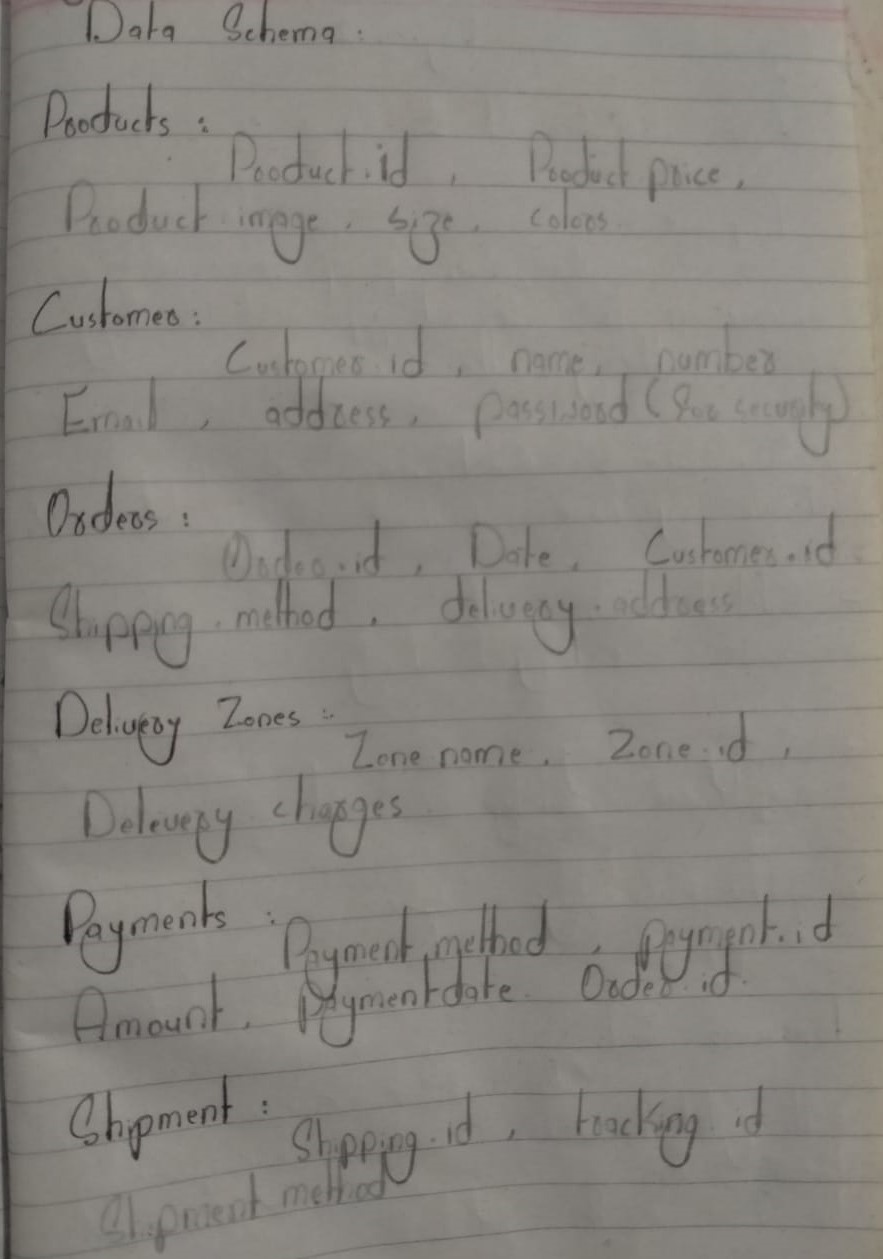 Data Schema :
Products :
Product.id , Product price ,
Product image , size , colors
Customer :
Customer id , name , number
Email , address , password (for security)
Orders :
Order.id , Date , Customer.id
Shipping.method , delivery.address
Delivery Zones :-
Zone name , Zone.id ,
Delevery charges
Payments :
Payment method , payment.id
Amount , Payment date Order id.
Shipment :
Shipping.id , tracking id
Shipment method